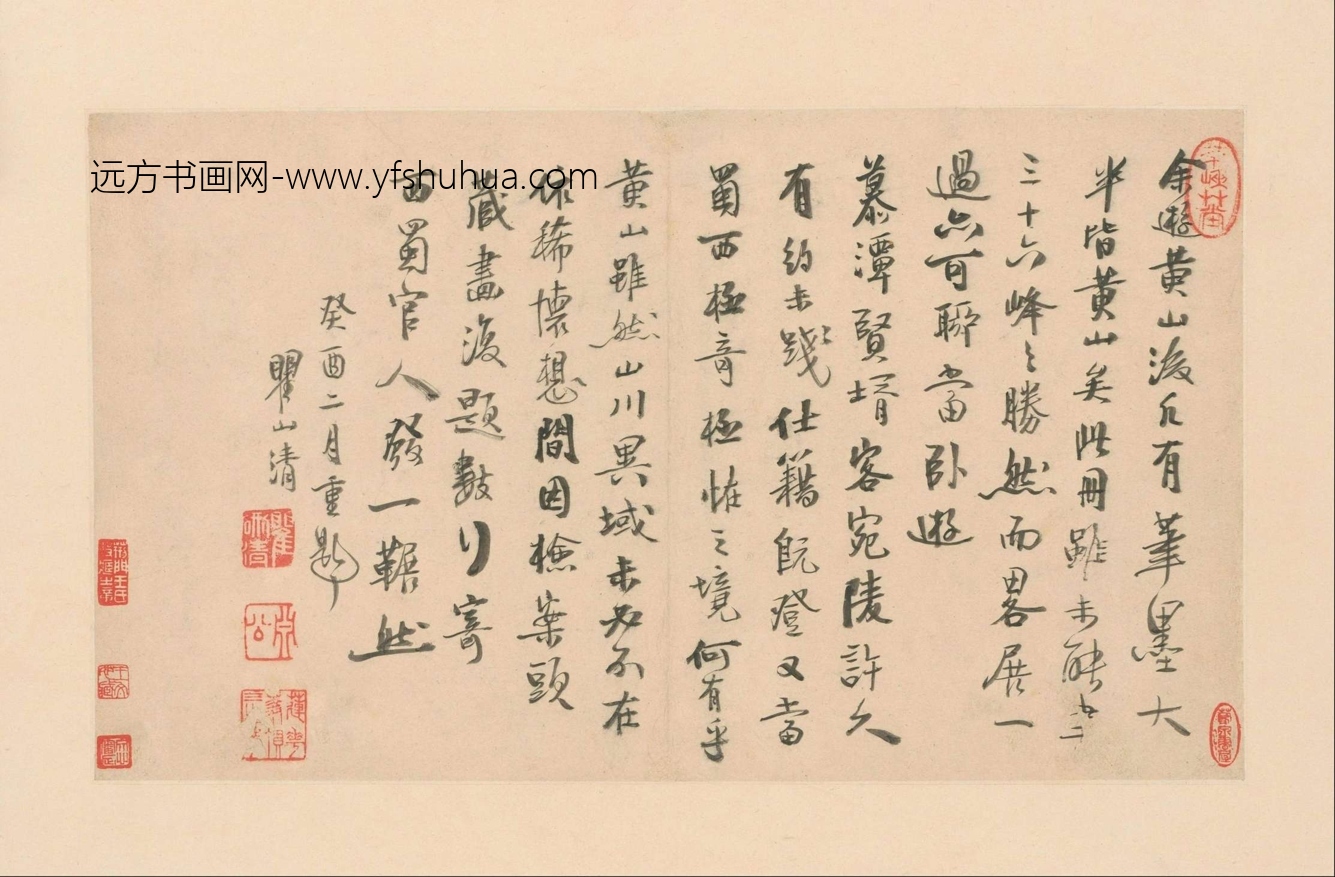 余遊黄山後凡有筆墨大
半皆黄山矣此冊雖未能盡
三十六峰之勝然而畧展一
過亦可聊當卧遊
慕潭賢壻客宛陵許久
有約未踐仕籍既登又當
蜀西極奇極怪之境何有乎
黄山雖然山川異域未必不在
依稀懷想間因檢案頭
藏畫復題數行寄
西蜀官人發一囅然
癸酉二月重題
瞿山清
远方书画网-www.yfshuhua.com
瞿硎清